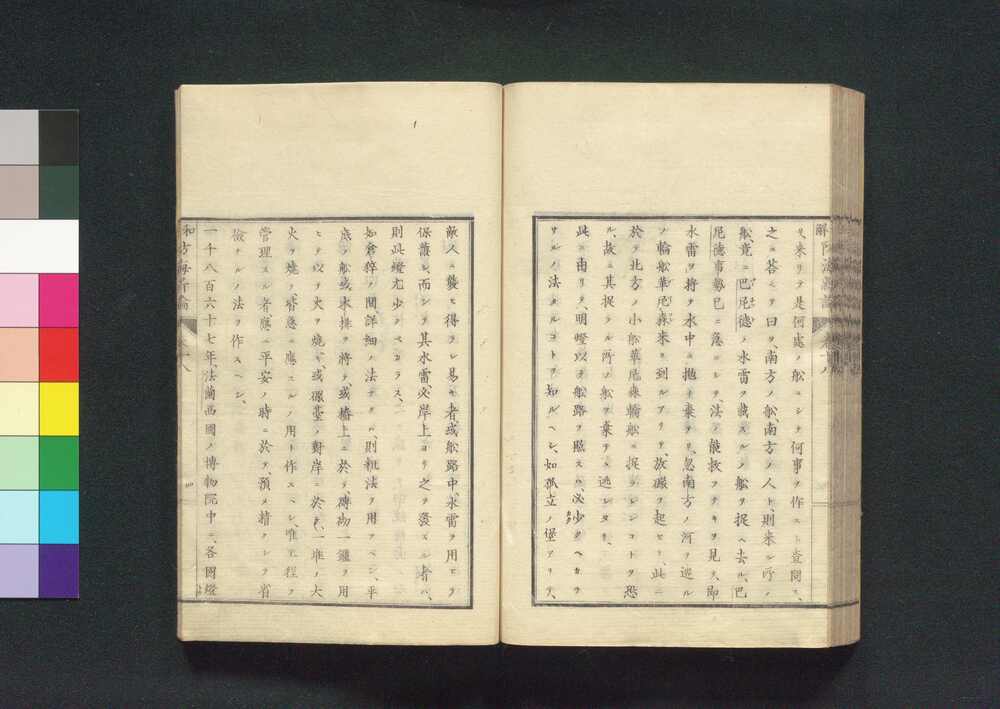 又来リテ是何處ノ船ニシテ何事ヲ作スト査問ス、
之ニ答ヘテ曰ク、南方ノ船、南方ノ人ト、則来ル所ノ
船竟ニ巴尼德ノ水雷ヲ載スルノ船ヲ捉ヘ去ル、巴
尼德事勢已ニ急ニシテ、法ノ能救フナキヲ見テ、即
水雷ヲ将テ水中ニ抛チ棄テリ、忽南方ノ河ヲ巡ル
ノ輪船華尼森来リ到ルアリテ、放礮ヲ起セリ、此ニ
於テ北方ノ小船華尼森輪船ニ捉ラレンコトヲ恐
ル、故ニ其捉ラル所ノ船ヲ棄テヽ逃レタリ、
此ニ由リテ、明燈以テ船路ヲ照スハ、必少クヘカラ
サルノ法タルコトヲ知ルヘシ、如孤立ノ堡アリテ、
敵人ニ襲ヒ得ラレ易キ者、或船路中、水雷ヲ用ヒテ
保護シ、而シテ其水雷、必岸上ヨリ之ヲ發スル者ハ、
則此燈尤少クヘカラス、
如倉猝ノ間、詳細ノ法ナクハ、則粗法ヲ用フヘシ、平
底ノ船或木排ヲ将テ、或檣上ニ於テ磚砌一爐ヲ用
ヒテ以テ火ヲ燒キ、或礮臺ノ對岸ニ於テ、一堆ノ大
火ヲ燒キ、皆應ニ應スルノ用ト作スヘシ、唯工程ヲ
管理スル者、應ニ平安ノ時ニ於テ、預メ精クシテ省
儉ナルノ法ヲ作スヘシ、
一千八百六十七年、法蘭西國ノ博物院中ニ、各國燈